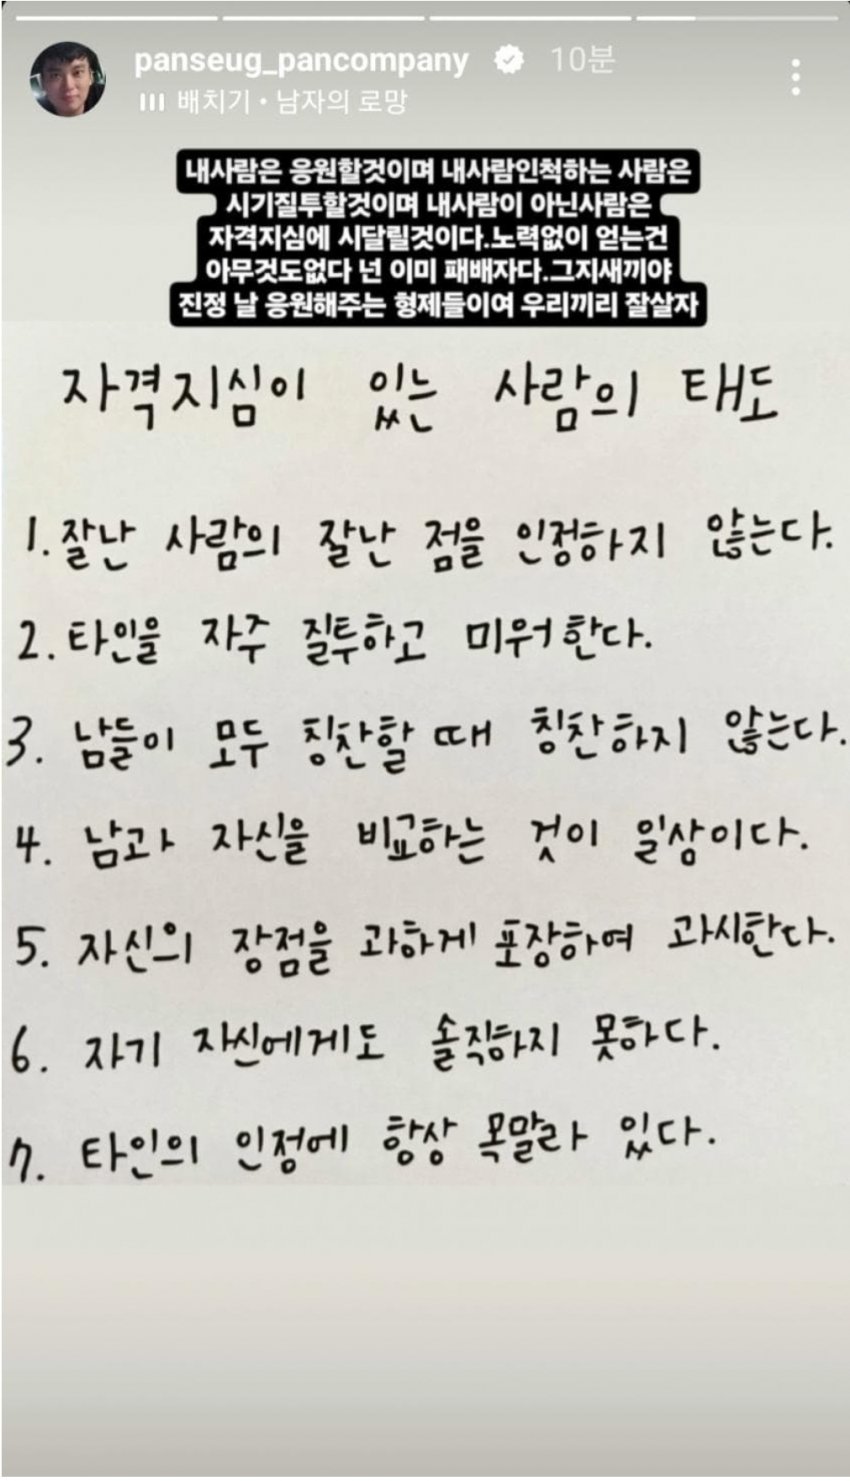 panseug_pancompany 10분
배치기 • 남자의 로망
내사람은 응원할것이며 내사람인척하는 사람은
시기질투할것이며 내사람이 아닌사람은
자격지심에 시달릴것이다.노력없이 얻는건
아무것도없다 넌 이미 패배자다.그지새끼야
진정 날 응원해주는 형제들이여 우리끼리 잘살자
자격지심이 있는 사람의 태도
1. 잘난 사람의 잘난 점을 인정하지 않는다.
2. 타인을 자주 질투하고 미워한다.
3. 남들이 모두 칭찬할 때 칭찬하지 않는다.
4. 남과 자신을 비교하는 것이 일상이다.
5. 자신의 장점을 과하게 포장하여 과시한다.
6. 자기 자신에게도 솔직하지 못하다.
7. 타인의 인정에 항상 목말라 있다.